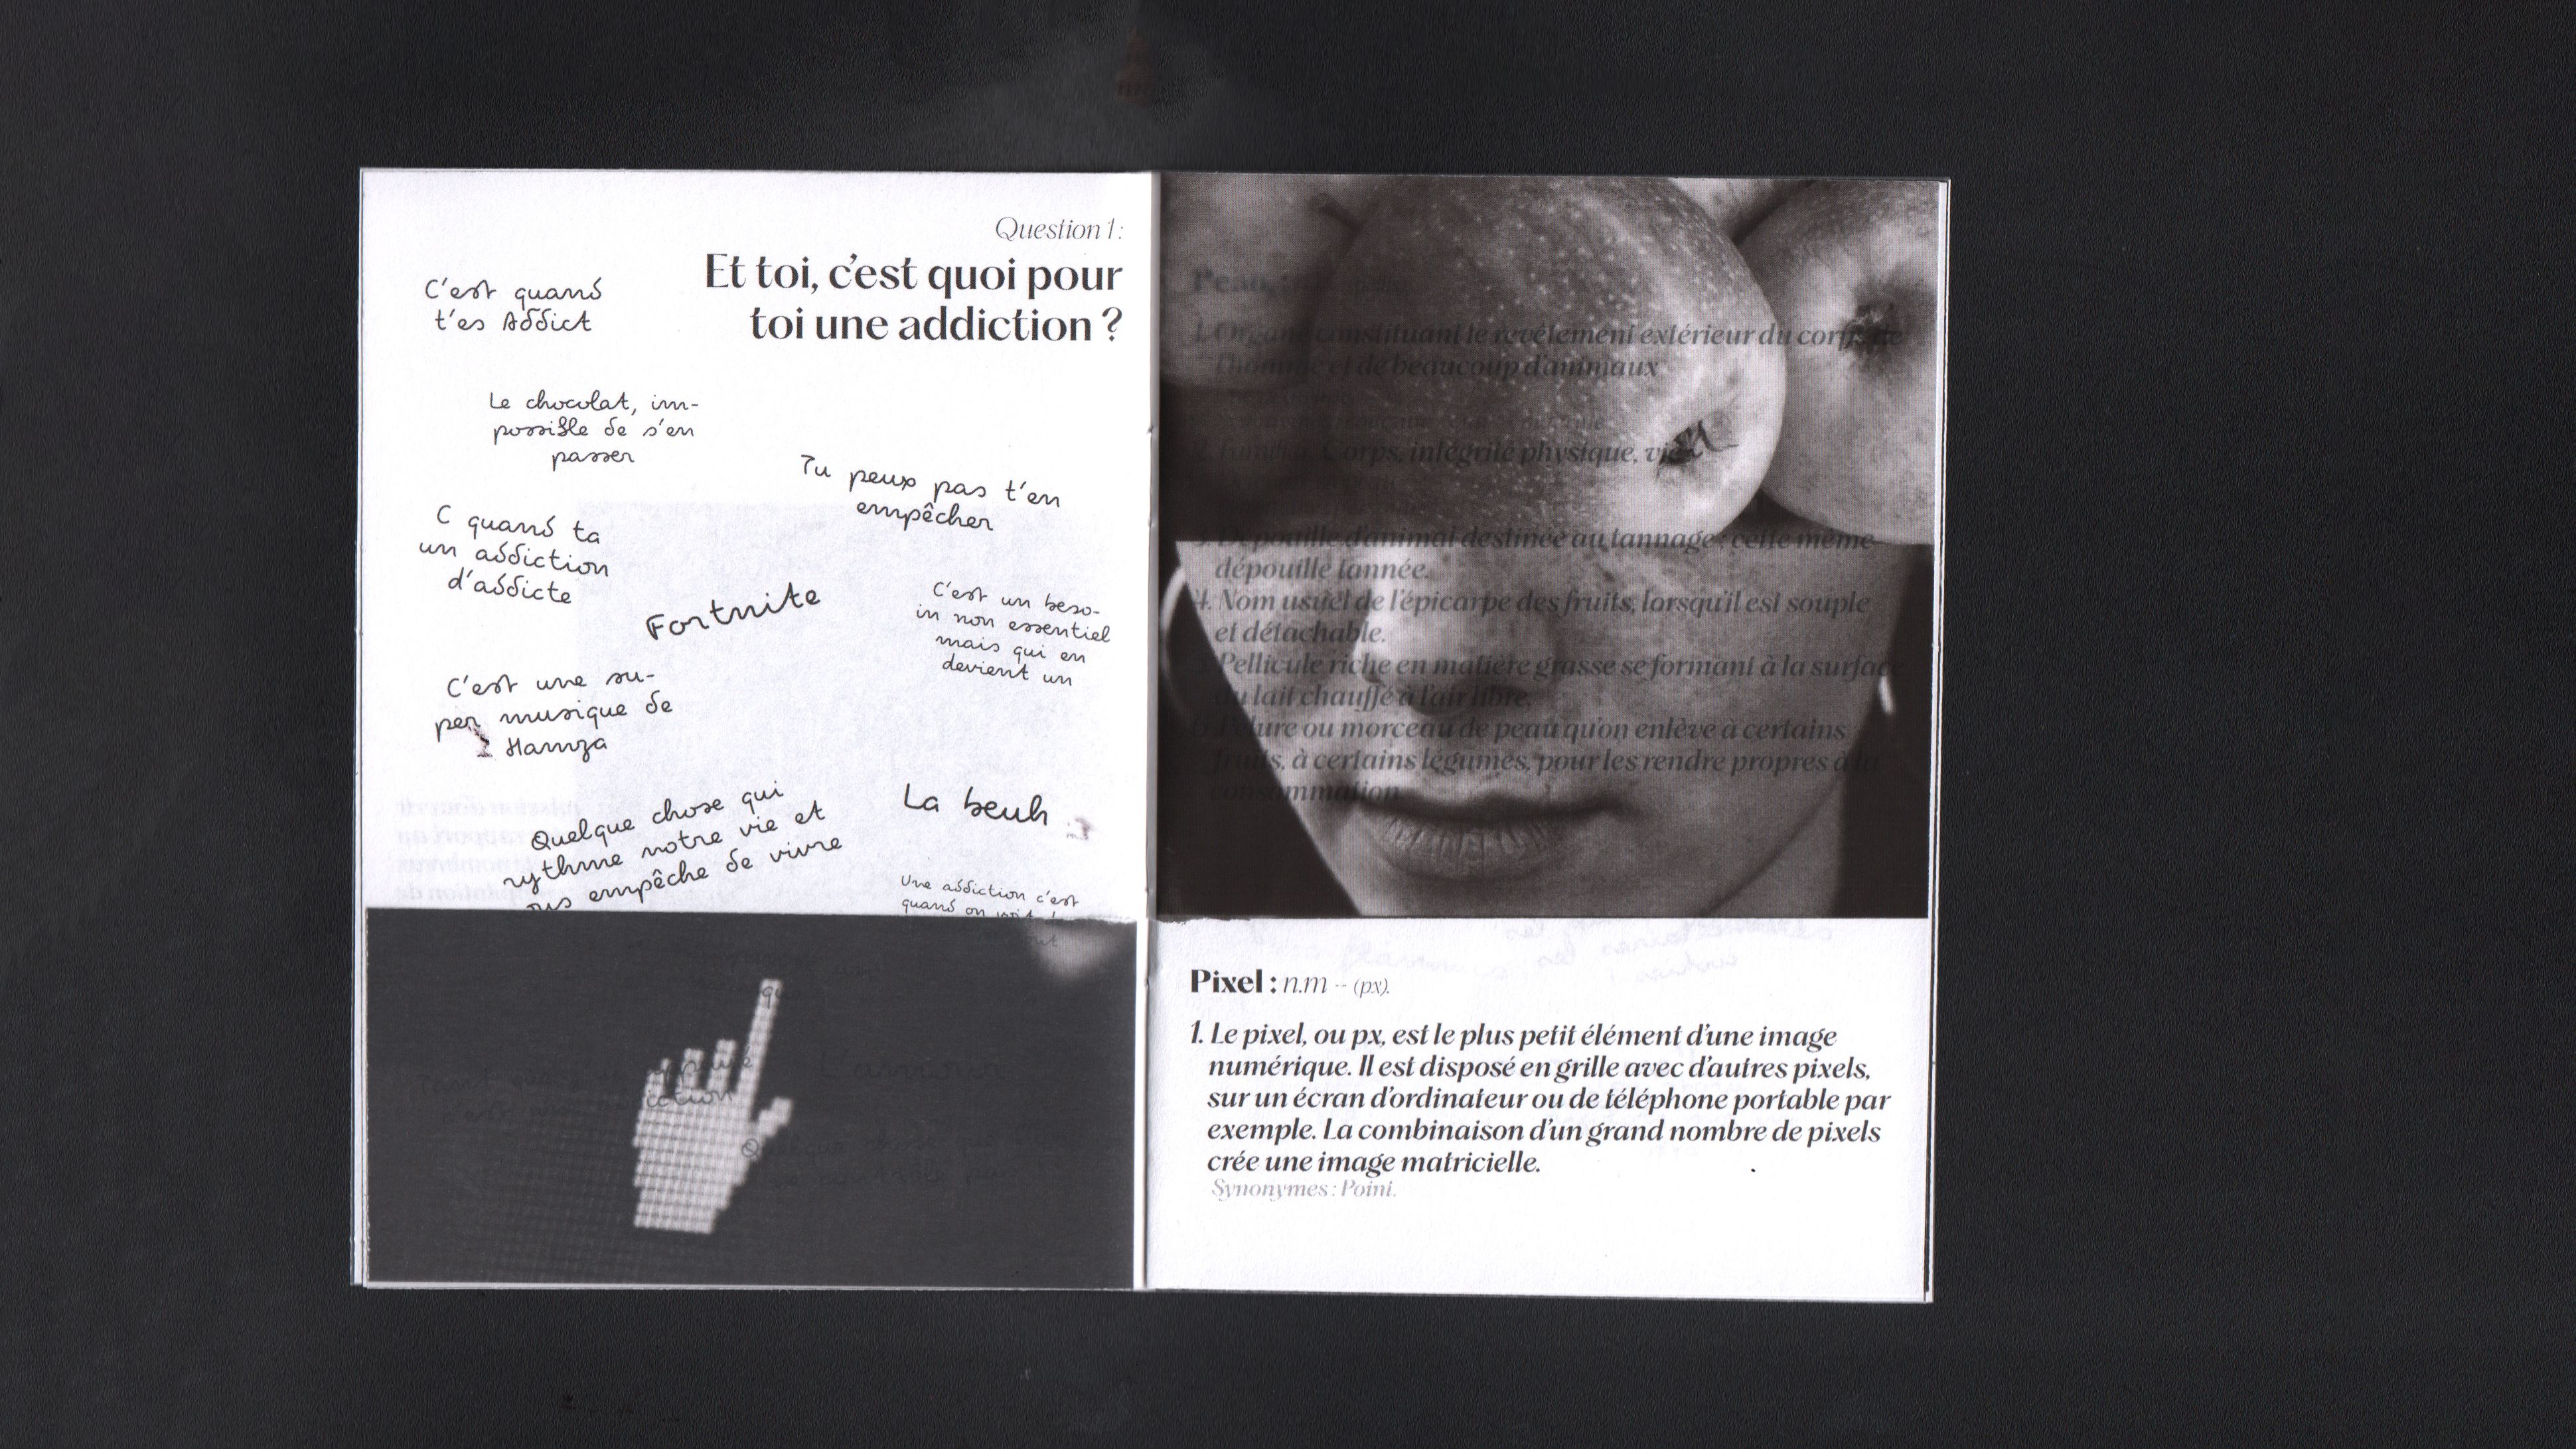 Question 1:
Et toi, c'est quoi pour
toi une addiction ?
C'est quand
t'es Addict
Le chocolat, im-
possible de s'en
passer
Tu peux pas t'en
empêcher
C quand ta
un addiction
d'addicte
Fortnite
C'est un beso-
in non essentiel
mais qui en
devient un
C'est une su-
per musique de
Hamza
Quelque chose qui
rythme notre vie et
empêche de vivre
La beuh
Une addiction c'est
quand on
Peau,
1. Organe constituant le revêtement extérieur du corps de
l'homme et de beaucoup d'animaux
Corps, intégrité physique, vie
3. Dépouille d'animal destinée au tannage ; cette même
dépouille tannée.
4. Nom usuel de l'épicarpe des fruits, lorsqu'il est souple
et détachable.
5. Pellicule riche en matière grasse se formant à la surface
du lait chauffé à l'air libre.
6. Pelure ou morceau de peau qu'on enlève à certains
fruits, à certains légumes, pour les rendre propres à la
consommation
Pixel : n.m -- (px).
1. Le pixel, ou px, est le plus petit élément d'une image
numérique. Il est disposé en grille avec d'autres pixels,
sur un écran d'ordinateur ou de téléphone portable par
exemple. La combinaison d'un grand nombre de pixels
crée une image matricielle.
Synonymes : Point.